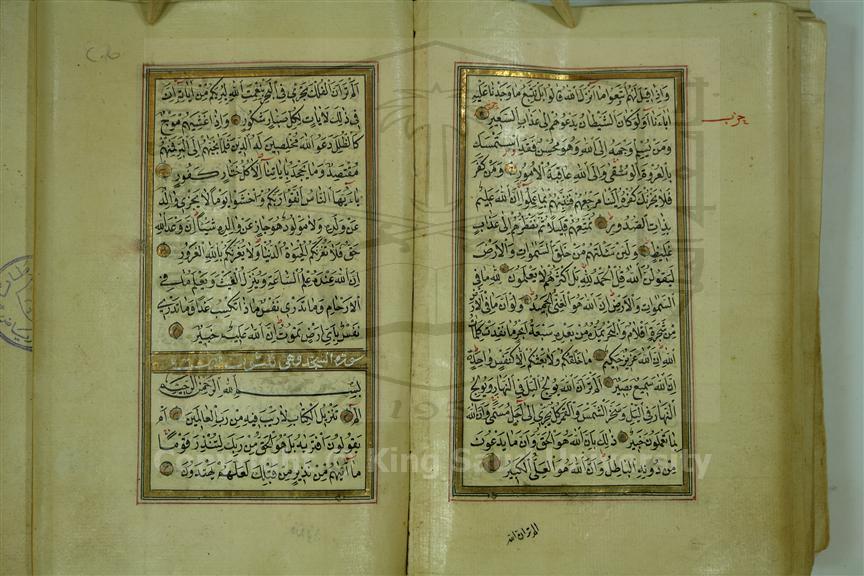 واذا قيل لهم اتبعوا ما انزل الله قالوا بل نتبع ما وجدنا عليه
اباءنا اولو كان الشيطان يدعوهم الى عذاب السعير
ومن يسلم وجهه الى الله وهو محسن فقد استمسك
بالعروة الوثقى والى الله عاقبة الامور ومن كفر
فلا يحزنك كفره الينا مرجعهم فننبئهم بما عملوا ان الله عليم
بذات الصدور نمتعهم قليلا ثم نضطرهم الى عذاب
غليظ ولئن سئلتهم من خلق السموات والارض
ليقولن الله قل الحمد لله بل اكثرهم لا يعلمون لله ما في
السموات والارض ان الله هو الغني الحميد ولو ان ما في الارض
من شجرة اقلام والبحر يمده من بعده سبعة ابحر ما نفدت كلمات
الله ان الله عزيز حكيم ما خلقكم ولا بعثكم الا كنفس واحدة
ان الله سميع بصير الم تر ان الله يولج الليل في النهار ويولج
النهار في الليل وسخر الشمس والقمر كل يجري الى اجل مسمى وان الله
بما تعملون خبير ذلك بان الله هو الحق وان ما يدعون
من دونه الباطل وان الله هو العلي الكبير
حزب
الم تر ان الله
الم تر ان الفلك تجري في البحر بنعمت الله ليريكم من اياته ان
في ذلك لايات لكل صبار شكور واذا غشيهم موج
كالظلل دعوا الله مخلصين له الدين فلما نجيهم الى البر فمنهم
مقتصد وما يجحد باياتنا الا كل ختار كفور
يا ايها الناس اتقوا ربكم واخشوا يوما لا يجزي والد
عن ولده ولا مولود هو جاز عن والده شيئا ان وعد الله
حق فلا تغرنكم الحيوة الدنيا ولا يغرنكم بالله الغرور
ان الله عنده علم الساعة وينزل الغيث ويعلم ما في
الارحام وما تدري نفس ماذا تكسب غدا وما تدري
نفس باي ارض تموت ان الله عليم خبير
سورة السجدة وهي ثلثون اية
بسم الله الرحمن الرحيم
الم تنزيل الكتاب لا ريب فيه من رب العالمين ام
يقولون افتريه بل هو الحق من ربك لتنذر قوما
ما اتيهم من نذير من قبلك لعلهم يهتدون
Copyright © King Saud University
195